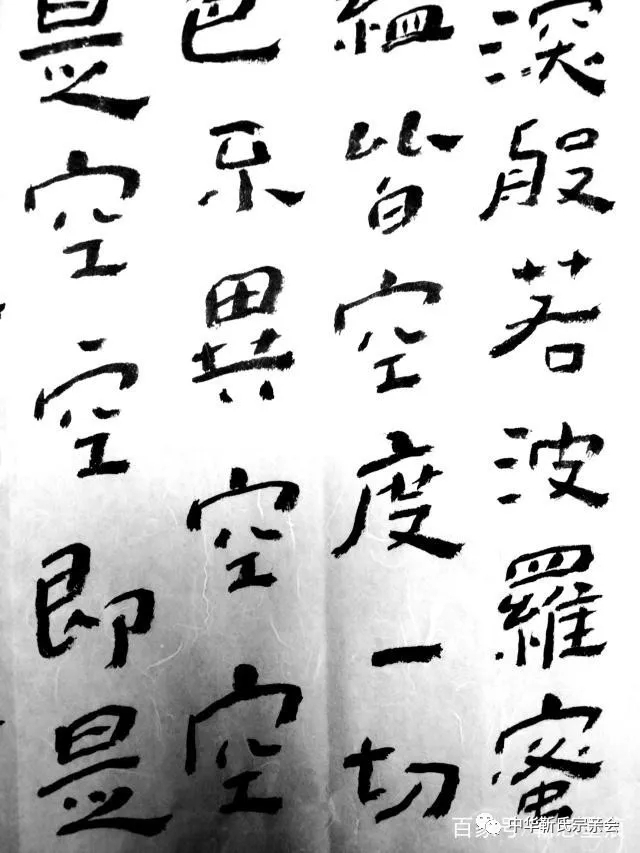 深般若波羅蜜
蘊皆空度一切
色不異空空
是空空即是
中华靳氏宗亲会
百家号